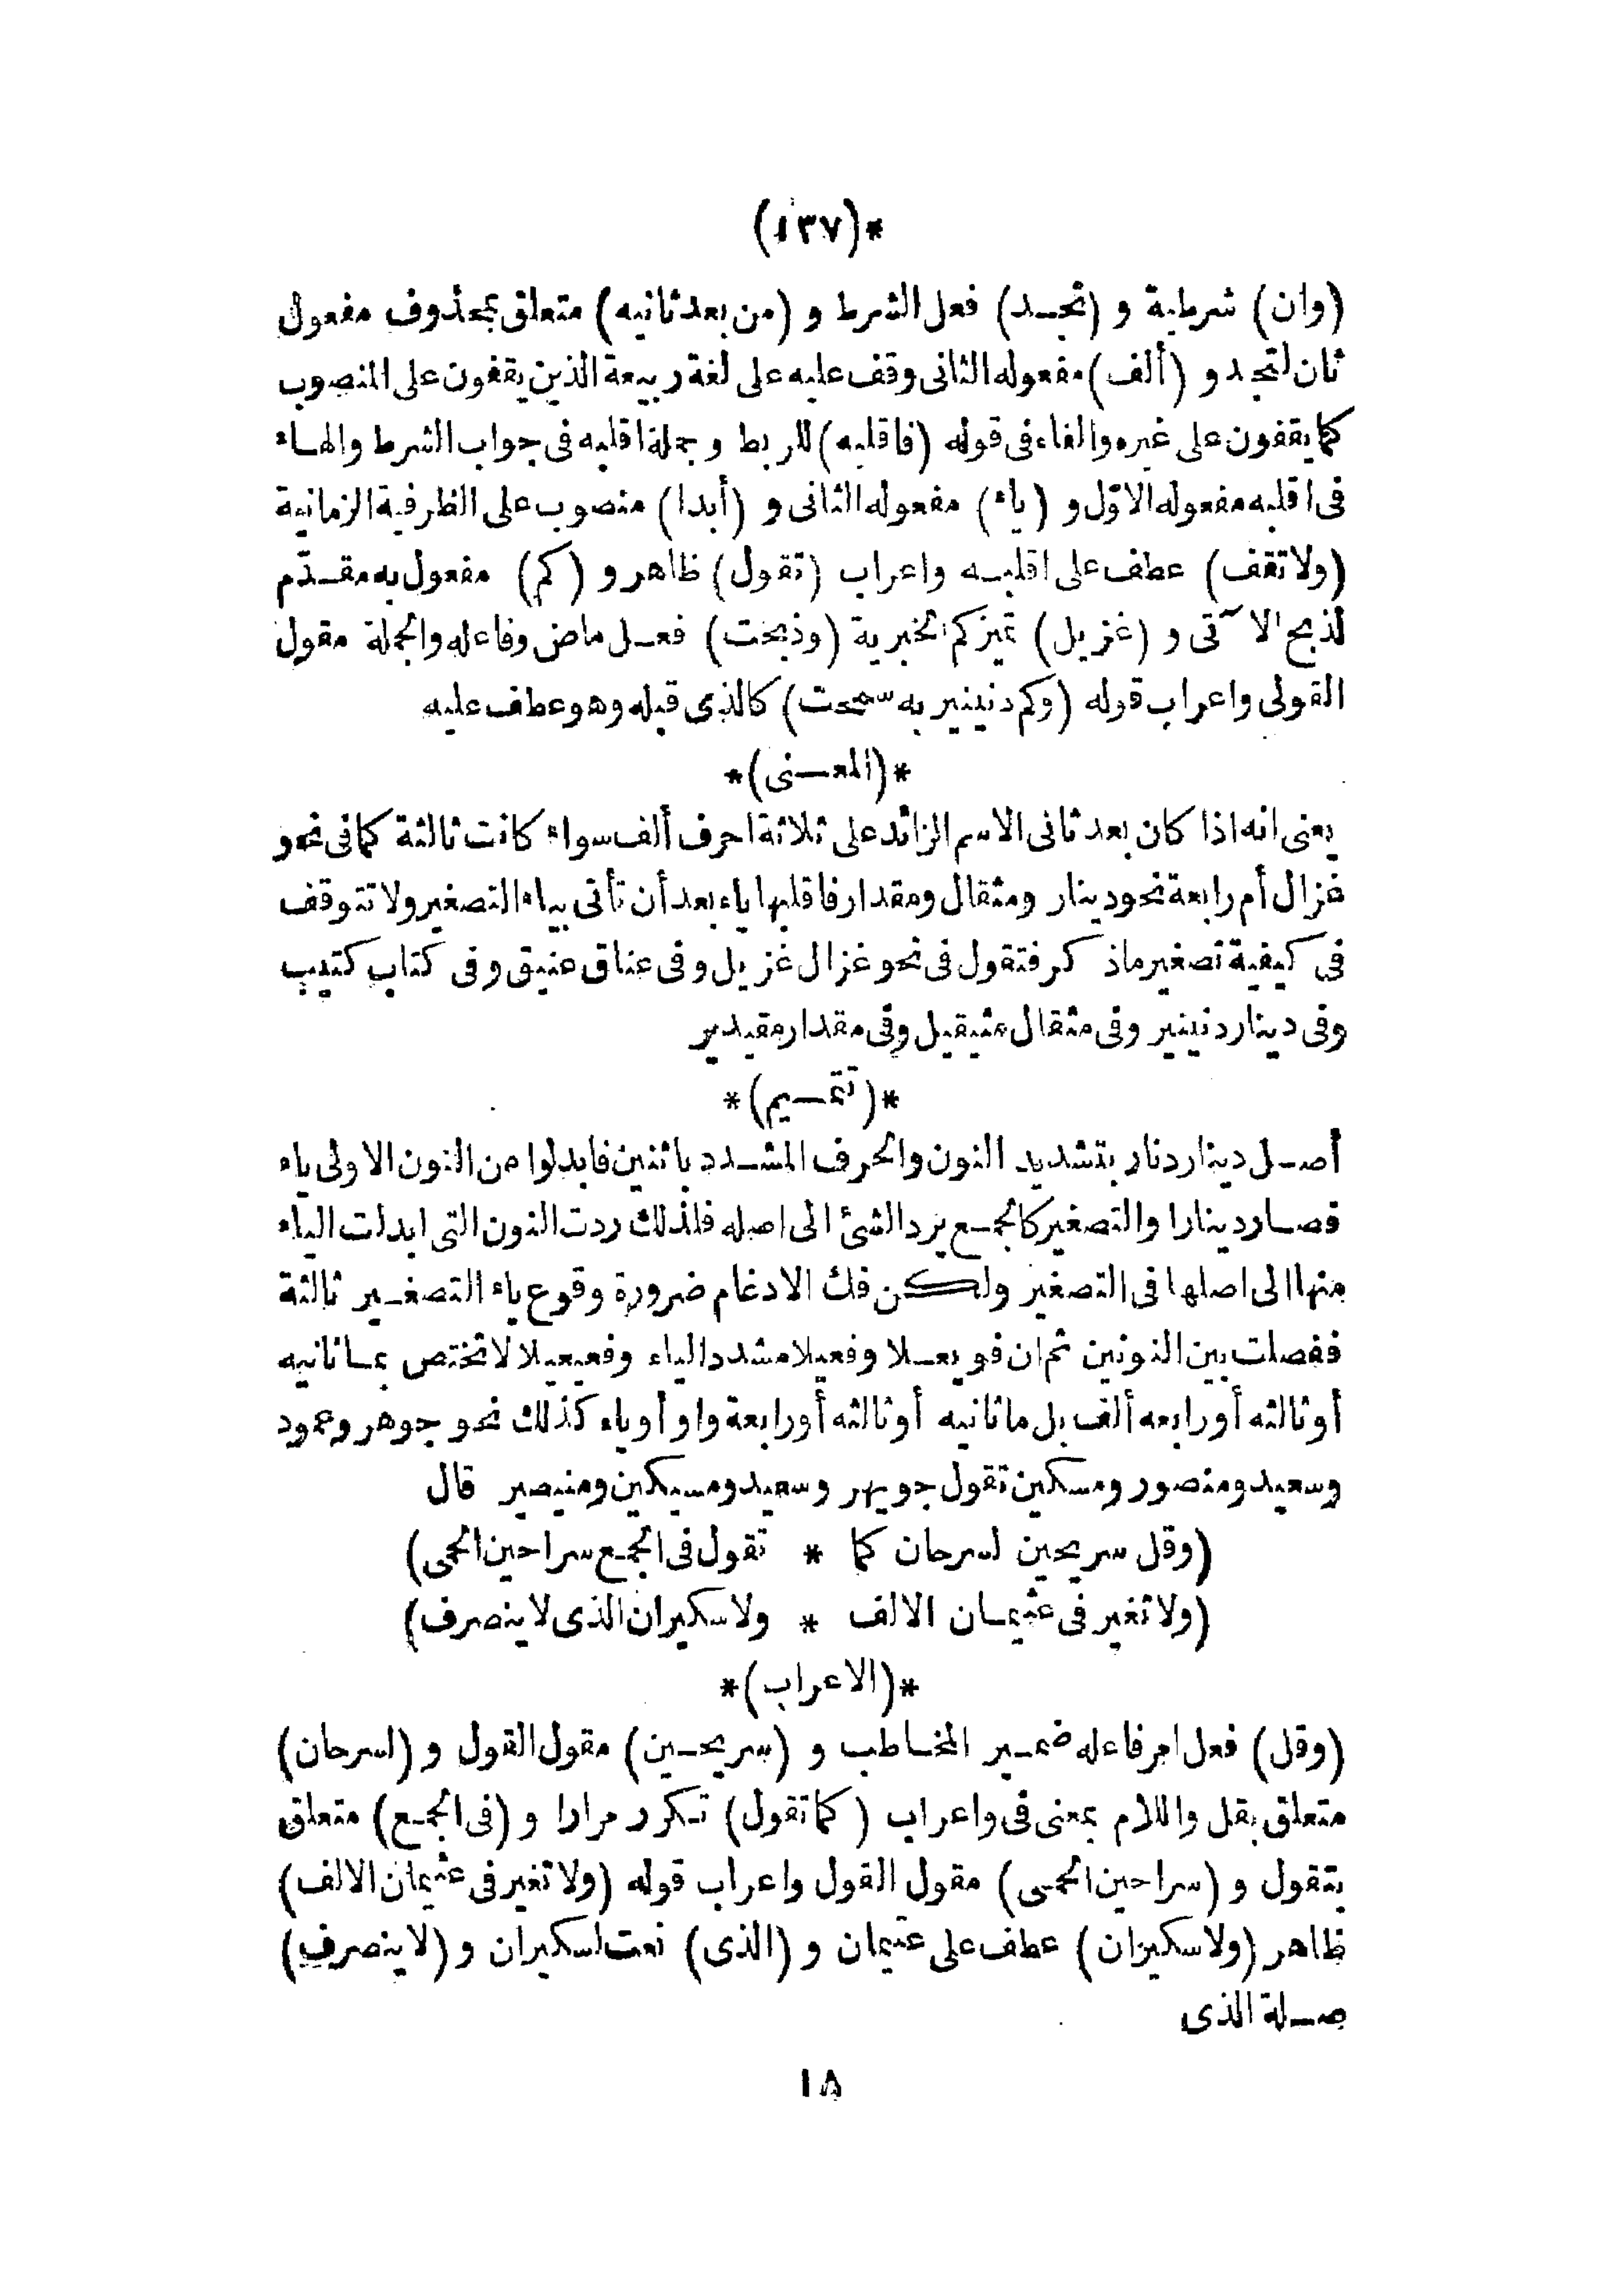 *(١٣٧)
(وان) شرطية و (تجد) فعل الشرط و (من بعد ثانيه) متعلق بمحذوف مفعول
ثان لتجد و (ألف) مفعوله الثانى وقف عليه على لغة ربيعة الذين يقفون على المنصوب
كما يقفون على غيره والفاء فى قوله (فاقلبه) للربط وجملة اقلبه فى جواب الشرط والهاء
فى اقلبه مفعوله الاوّل و (ياء) مفعوله الثانى و (أبدا) منصوب على الظرفية الزمانية
(ولا تقف) عطف على اقلبه واعراب (تقول) ظاهر و (كم) مفعول به مقدّم
لذبح الا ٓتى و (غزيل) تميز كم الخبرية (وذبحت) فعل ماض وفاعله والجملة مقول
القولى واعراب قوله (وكم دنينير به سمحت) كالذى قبله وهو عطف عليه
*(المعنى)*
يعنى انه اذا كان بعد ثانى الاسم الزائد على ثلاثة احرف ألف سواء كانت ثالثة كما فى نحو
غزال أم رابعة نحو دينار ومثقال ومقدار فاقلبها ياء بعد أن تأتى بياء التصغير ولا تتوقف
فى كيفية تصغير ماذ كر فتقول فى نحو غزال غزيل وفى عناق عنيق وفى كتاب كتيب
وفى دينار دنينير وفى مثقال مثيقيل وفى مقدار مقيدير
*(تتميم)*
أصل دينار دنار بتشديد النون والحرف المشدد باثنين فابدلوا من النون الاولى ياء
فصار دينارا والتصغير كالجمع يرد الشئ الى اصله فلذلك ردت النون التى ابدلت الياء
منها الى اصلها فى التصغير ولكن فك الادغام ضرورة وقوع ياء التصغير ثالثة
ففصلت بين النونين ثم ان فويعلا وفعيلا مشدد الياء وفعيعيلا لا تختص بما ثانيه
أو ثالثه أو رابعه ألف بل ما ثانيه أو ثالثه أو رابعة واو أو ياء كذلك نحو جوهر وعمود
وسعيد ومنصور ومسكين تقول جويهر وسعيد ومسيكين ومنيصير قال
(وقل سريحين لسرحان كما * تقول فى الجمع سراحين الحمى)
(ولا تغير فى عثيمان الالف * ولا سكيران الذى لا ينصرف)
*(الاعراب)*
(وقل) فعل امر فاعله ضمير المخاطب و (سريحين) مقول القول و (لسرحان)
متعلق بقل واللام بمعنى فى واعراب (كما تقول) تكرر مرارا و (فى الجمع) متعلق
بتقول و (سراحين الحمى) مقول القول واعراب قوله (ولا تغير فى عثيمان الالف)
ظاهر (ولا سكيران) عطف على عثيمان و (الذى) نعت لسكيران و (لا ينصرف)
صلة الذى
١٨